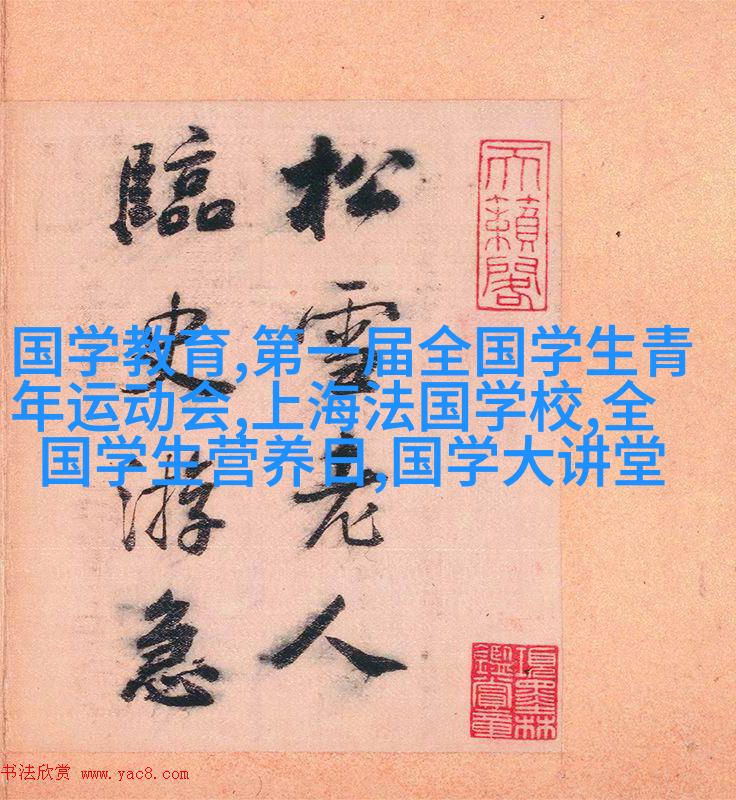 松雪老人
臨史游急
天籟閣
項墨林
鑑賞章
国学教育,第一届全国学生青
年运动会,上海法国学校,全
国学生营养日,国学大讲堂
书法欣赏 www.yac8.com